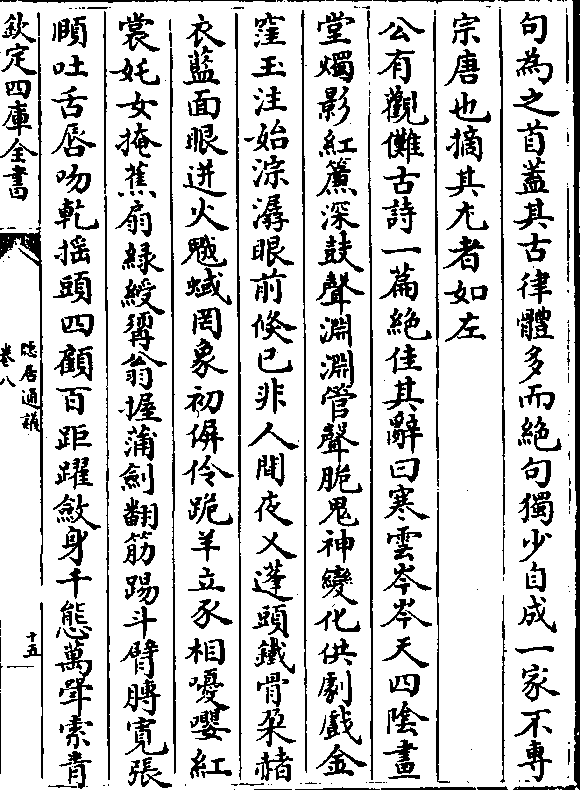 句為之首蓋其古律體多而絶句獨少自成一家不專
宗唐也摘其尤者如左
公有觀儺古詩一篇絶佳其辭曰寒雲岑岑天四陰畫
堂燭影紅簾深鼓聲淵淵管聲脆鬼神變化供劇戲金
窪玉注始淙潺眼前倐已非人間夜乂蓬頭鐵骨朶赭
衣藍面眼迸火魊蜮罔象初偋伶跪羊立豕相嚘嚶紅
裳姹女掩蕉扇緑綬髯翁握蒲劍翻筋踢斗臂膊寛張
頤吐舌唇吻乾揺頭四顧百距躍斂身千態萬聳索青
欽定四庫全書
隠居通議
卷八
十五